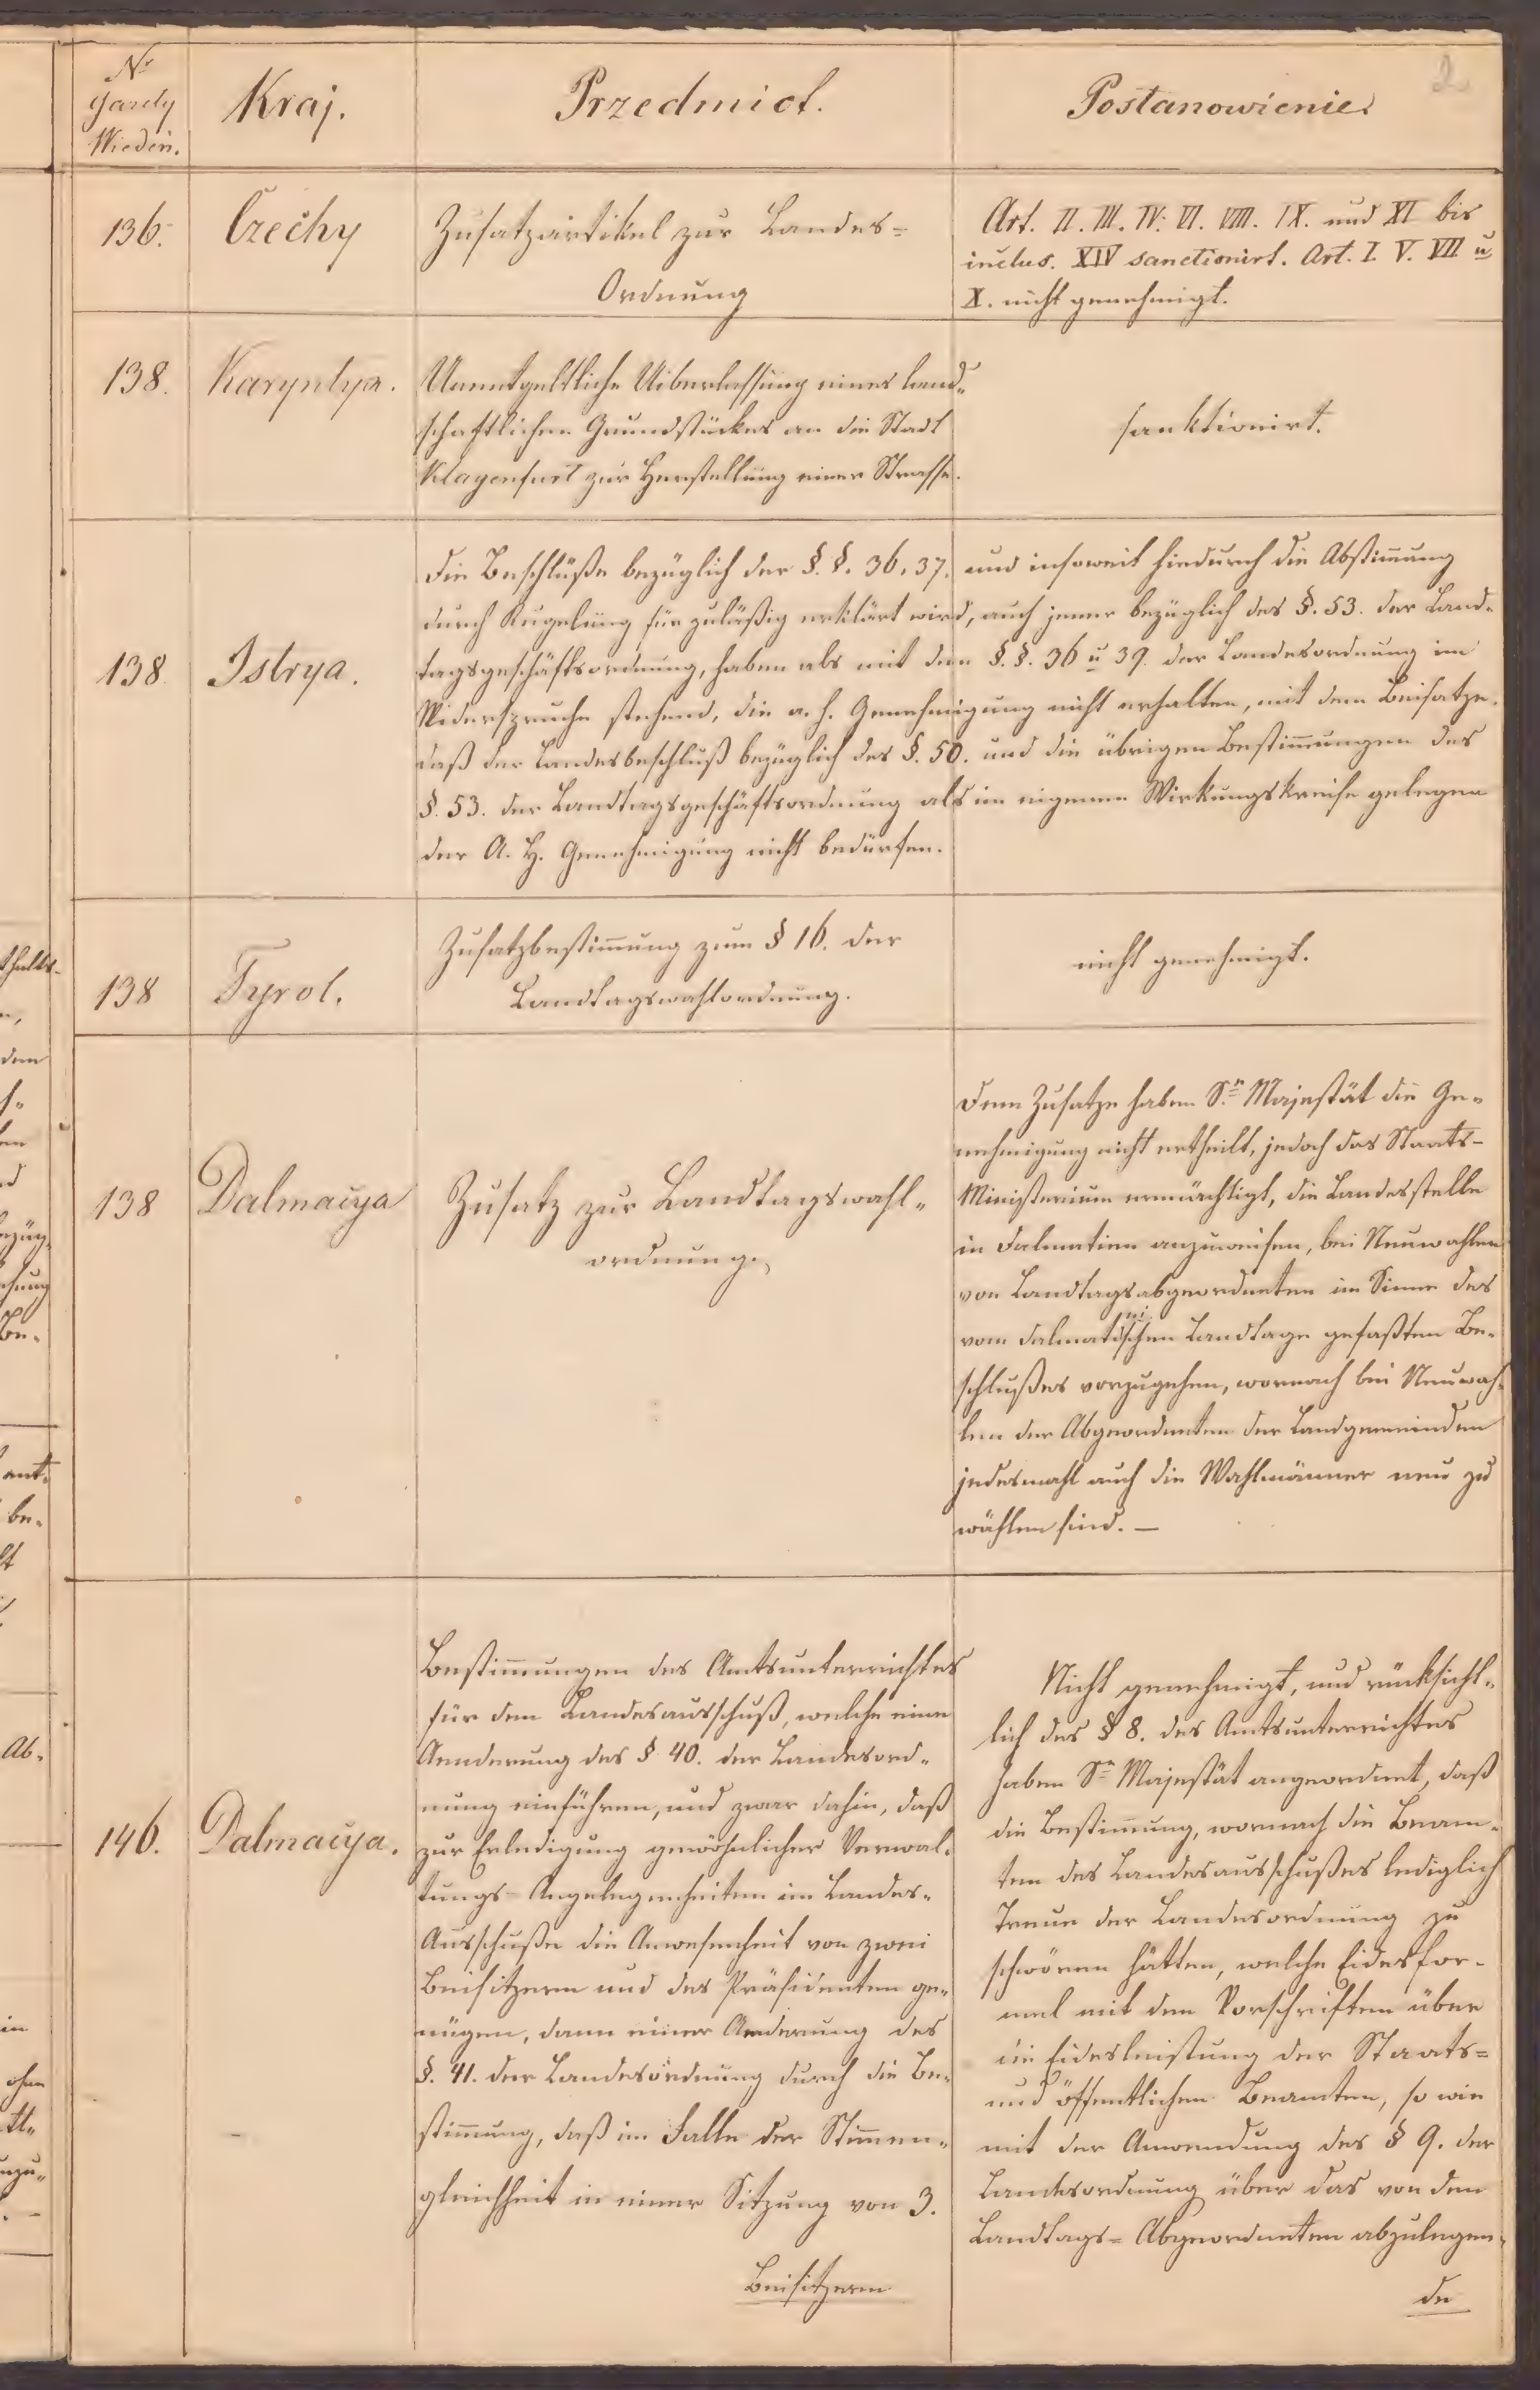 2
Nr
Gazety
Wiedeń.
Kraj.
Przedmiot.
Postanowienie.
136.
Czechy
Zusatzartikel zur Landes=
Ordnung
Art. II. III. IV. VI. VIII. IX. und XI bis
inclus. XIV sanctionirt. Art. I. V. VII u.
X. nicht genehmigt.
138.
Karyntya.
Unentgeltliche Uiberlassung eines land-
schaftlichen Grundstückes an die Stadt
Klagenfurt zur Herstellung einer Strasse.
sanktionirt.
138
Istrya.
Die Beschlüße bezüglich der §. §. 36, 37. und insoweit hiedurch die Abstimmung
durch Kugelung für zuläßig erklärt wird, auch jener bezüglich des §. 53. der Land-
tagsgeschäftsordnung, haben als mit den §. §. 36 u 39. der Landesordnung im
Widerspruche stehend, die a. h. Genehmigung nicht erhalten, mit dem Beisatze,
daß der Landesbeschluß bezüglich des §. 50. und die übrigen Bestimmungen des
§. 53. der Landtagsgeschäftsordnung als im eigenen Wirkungskreise gelegen
der A. H. Genehmigung nicht bedürfen.
138
Tyrol.
Zusatzbestimmung zum § 16. der
Landtagswahlordnung.
nicht genehmigt.
138
Dalmacya
Zusatz zur Landtagswahl-
ordnung.
Dem Zusatze haben Se. Majestät die Ge-
nehmigung nicht ertheilt, jedoch das Staats-
Ministerium ermächtigt, die Landesstelle
in Dalmatien anzuweisen, bei Neuwahlen
von Landtagsabgeordneten im Sinne des
vom dalmatinischen Landtage gefaßten Be-
schlußes vorzugehen, wornach bei Neuwah-
len der Abgeordneten der Landgemeinden
jedesmahl auch die Wahlmänner neu zu
wählen sind. —
146.
Dalmacya.
Bestimmungen des Amtsunterrichtes
für den Landesausschuß, welche eine
Aenderung des § 40. der Landesord-
nung einführen, und zwar dahin, daß
zur Erledigung gewöhnlicher Verwal-
tungs-Angelegenheiten im Landes-
Ausschuße die Anwesenheit von zwei
Beisitzern und des Präsidenten ge-
nügen, dann einer Aenderung des
§. 41. der Landesordnung durch die Be-
stimmung, daß im Falle der Stimmen-
gleichheit in einer Sitzung von 3.
Beisitzern
Nicht genehmigt, und rücksicht-
lich des § 8. des Amtsunterrichtes
haben Se Majestät angeordnet, daß
die Bestimmung, wornach die Beam-
ten des Landesausschußes lediglich
Treue der Landesordnung zu
schwören hätten, welche Eidesfor-
mel mit den Vorschriften über
die Eidesleistung der Staats=
und öffentlichen Beamten, so wie
mit der Anwendung des § 9. der
Landesordnung über das von den
Landtags=Abgeordneten abzulegen-
de